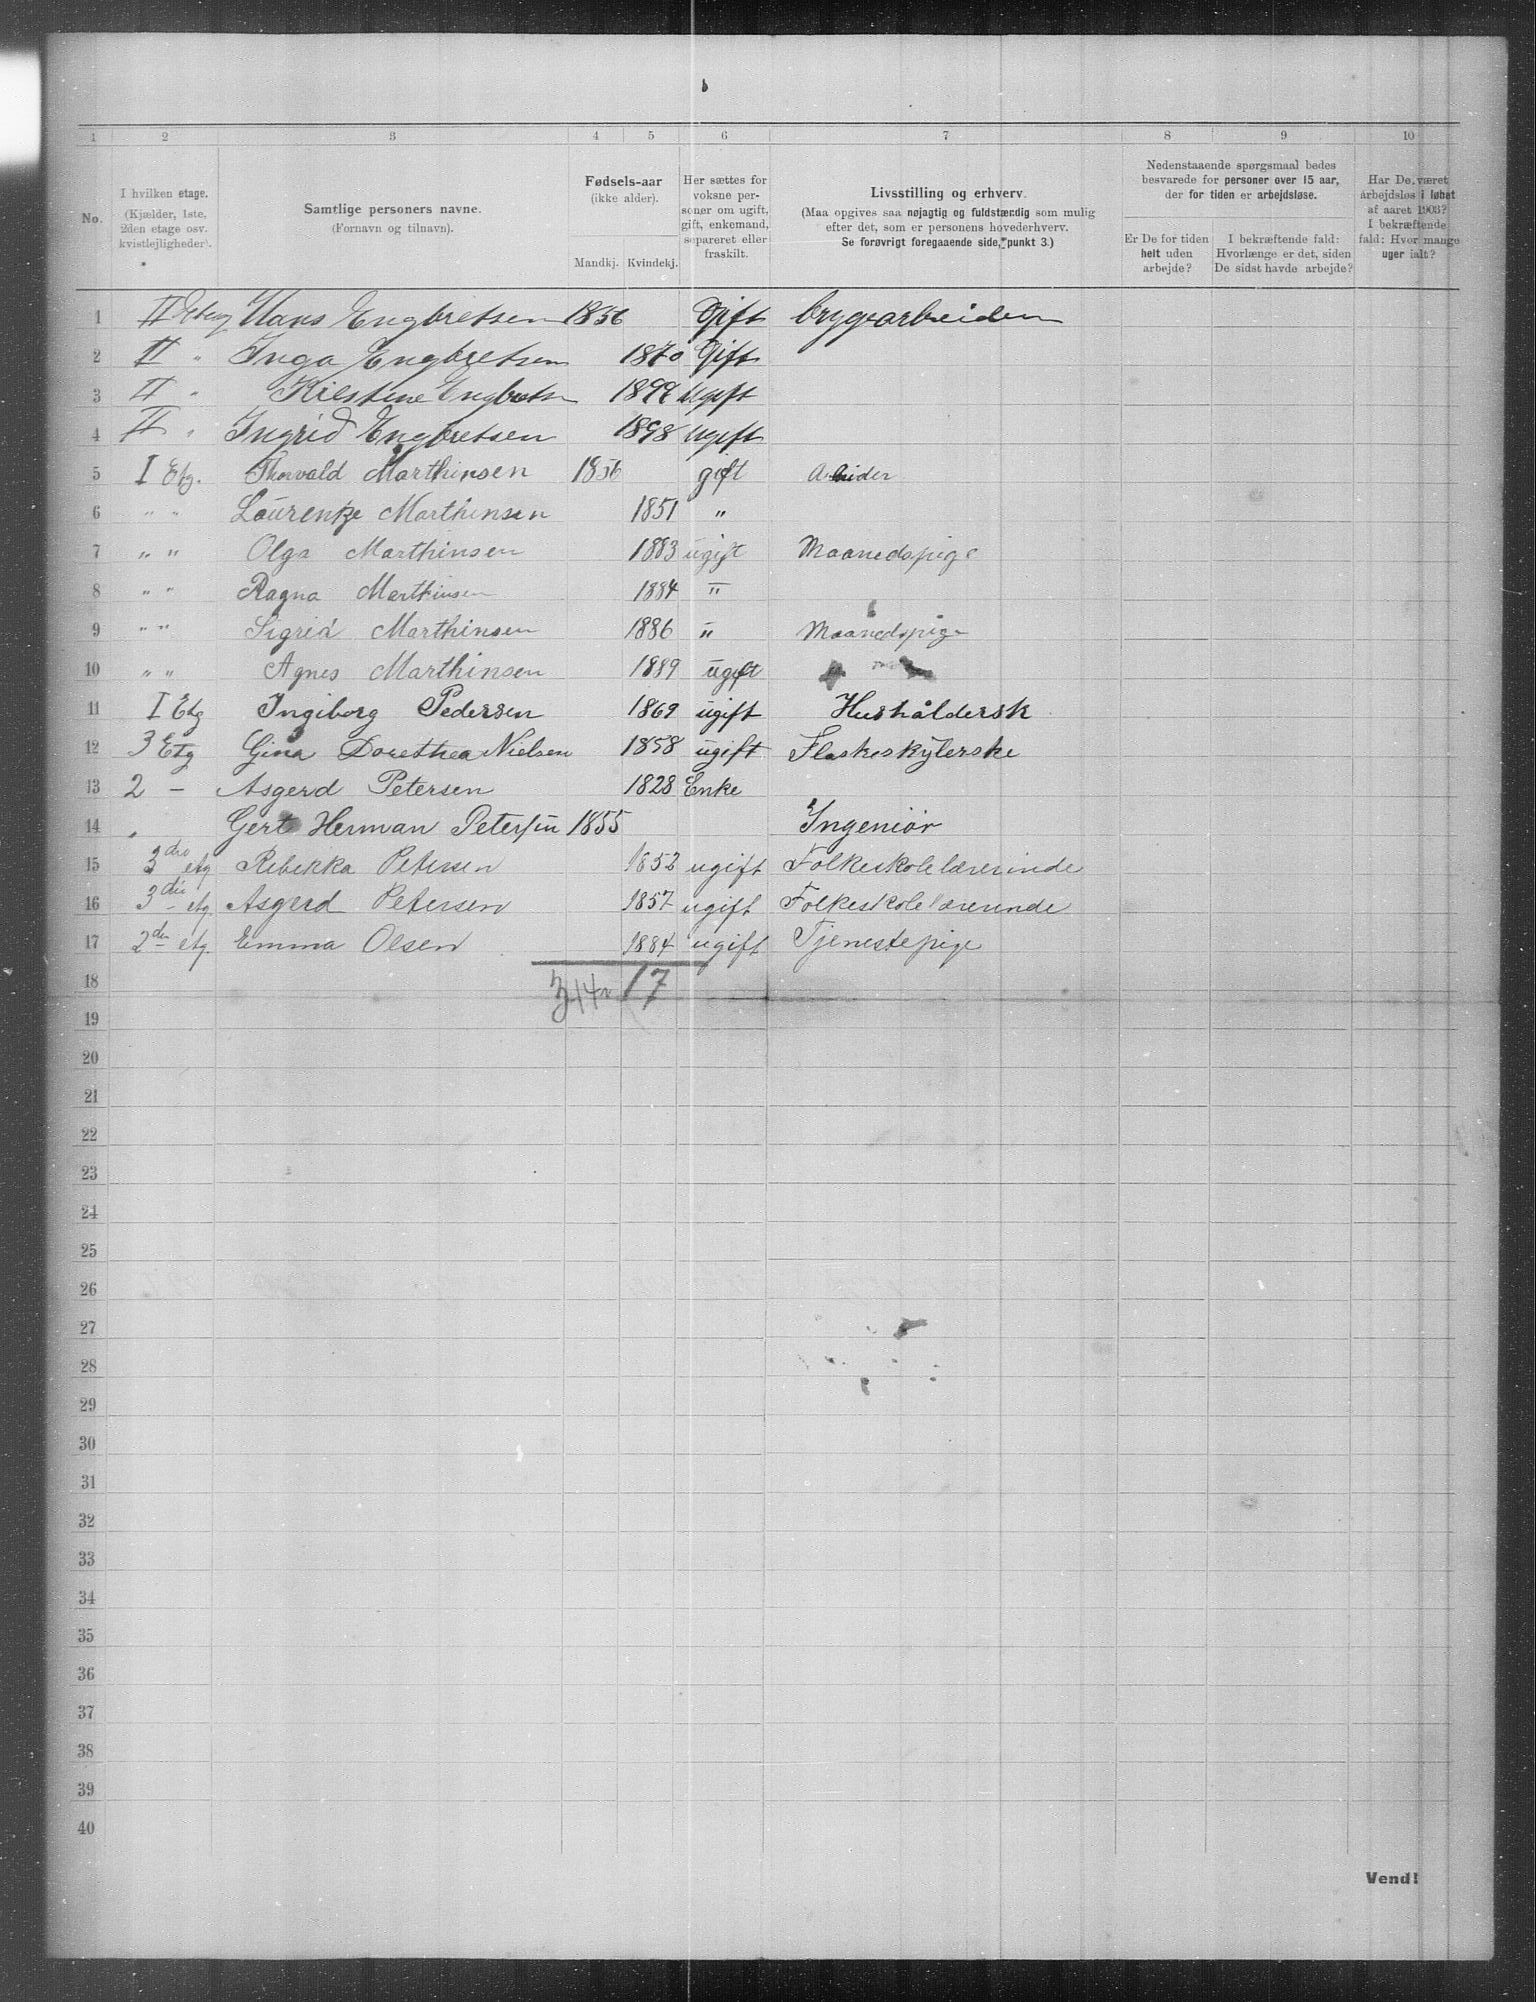 1 2 3 4 5 6 7 8 9 10
No.
I hvilken etage.
(Kjælder, 1ste,
2den etage osv.
kvistlejligheder).
Samtlige personers navne.
(Fornavn og tilnavn).
Fødsels-aar
(ikke alder).
Mandkj. Kvindekj.
Her sættes for
voksne per-
soner om ugift,
gift, enkemand,
separeret eller
fraskilt.
Livsstilling og erhverv.
(Maa opgives saa nøjagtig og fuldstændig som mulig
efter det, som er personens hovederhverv.
Se forøvrigt foregaaende side, punkt 3.)
Nedenstaaende spørgsmaal bedes
besvarede for personer over 15 aar,
der for tiden er arbejdsløse.
Er De for tiden
helt uden
arbejde?
I bekræftende fald:
Hvorlænge er det, siden
De sidst havde arbejde?
Har De været
arbejdsløs i løbet
af aaret 1903?
I bekræftende
fald: Hvor mange
uger ialt?
1 II Etag Hans Engbretsen 1856 Gift brygearbeiden
2 II " Inga Engbretsen 1870 Gift
3 II " Kirstine Engbretsn ugift
4 II " Ingrid Engbretsen 1898 ugift
5 I Etg. Thorvald Marthinsen 1856 gift Arbeider
6 " " Laurentze Marthinsen 1851 "
7 " " Olga Marthinsen 1883 ugift Maanedspige
8 " " Ragna Marthinsen 1884 "
9 " " Sigrid Marthinsen 1886 " Maanedspige
10 " " Agnes Marthinsen 1889 ugift
11 I Etg Ingiborg Pedersen 1869 ugift Hushåldersk
12 3 Etg Gina Dorethea Nielsen 1858 ugift Flaskeskylerske
13 2 – Asgerd Petersen 1828 Enke
14 " Gert Herman Petersen 1855 Ingeniør
15 3die etg Rebekka Petersen 1852 ugift Folkeskolelærerinde
16 3die etg. Asgerd Petersen 1857 ugift Folkeskolelærerinde
17 2den etg. Emma Olsen 1884 ugift Tjenestepige
18 17
19
20
21
22
23
24
25
26
27
28
29
30
31
32
33
34
35
36
37
38
39
40
Vend!